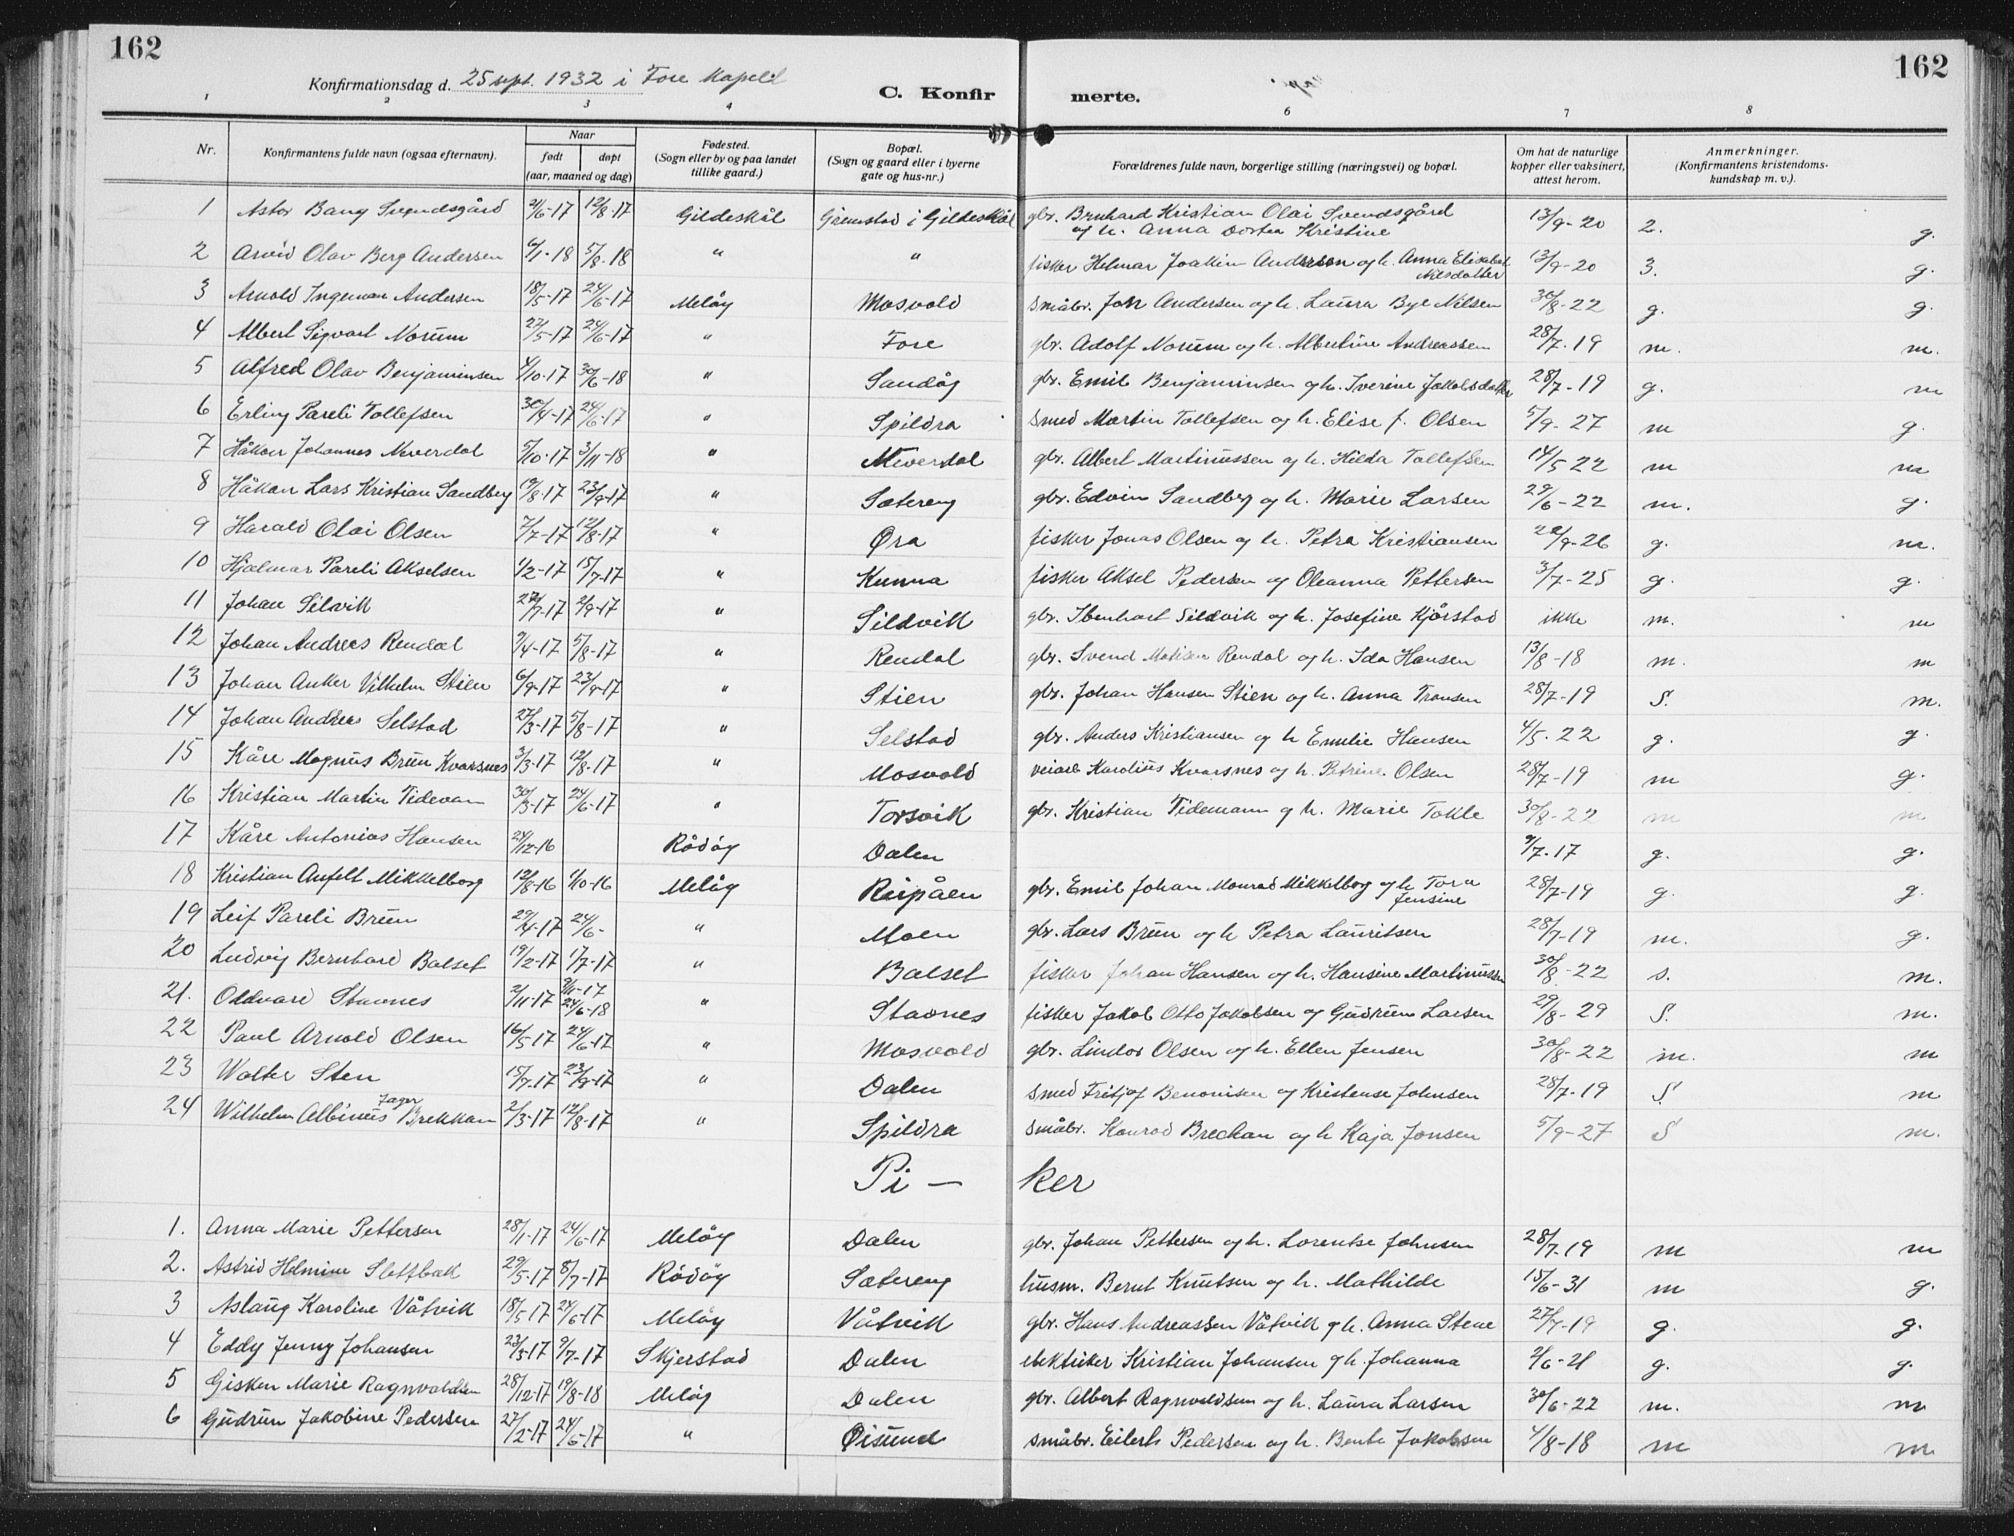 162
162
Konfirmationsdag d. 25 sept. 1932 i Fore Kapell
C. Konfir merte.
1 2 3 4 6 7 8
Nr. Konfirmantens fulde navn (ogsaa efternavn). Naar født døpt (aar, maaned og dag) Fødested. (Sogn eller by og paa landet tillike gaard.) Bopæl. (Sogn og gaard eller i byerne gate og hus-nr.) Forældrenes fulde navn, borgerlige stilling (næringsvei) og bopæl. Om hat de naturlige kopper eller vaksinert, attest herom. Anmerkninger. (Konfirmantens kristendoms-kundskap m. v.).
1 Astor Bang Svendsgård 21/6-17 12/8-17 Gildeskål Grimstad i Gildeskål gbr. Brnhard Kristian Olai Svendsgård og h. Anna Dortea Kristine 13/9-20 2. g.
2 Arvid Olav Berg Andersen 6/1-18 5/8-18 " " fisker Helmar Joakim Andersen og h. Anna Elisabet Nilsdatter 13/9-20 3. g.
3 Arnold Ingeman Andersen 18/5-17 24/6-17 Meløy Mosvold småbr. Joh Andersen og h. Laura Bye Nilsen 30/8-22 g. g.
4 Albert Sigvart Norum 27/5-17 24/6-17 " Fore gbr. Adolf Norum og h. Albertine Andreassen 28/7-19 m. m.
5 Alfred Olav Benjaminsen 4/10-17 30/6-18 " Sandøy gbr. Emil Benjaminsen og h. Iverine Jakobsdatter 28/7-19 g. m
6 Erling Pareli Tollefsen 30/4-17 24/6-17 " Spildra smed Martin Tollefsen og h. Elise f. Olsen 5/9-27 m g.
7 Håkon Johannes Neverdal 5/10-17 3/11-18 " Neverdal gbr. Albert Martinussen og h. Hilda Tollefsen 14/5 22 m m
8 Håkon Lars Kristian Sandberg 19/8-17 23/9-17 " Sætereng gbr. Edvin Sandberg og h. Marie Larsen 29/6-22 m. g.
9 Harald Olai Olsen 7/7-17 12/8-17 " Øra fisker Jonas Olsen og h. Petra Kristiansen 22/9-26 g. m.
10 Hjalmar Pareli Akselsen 1/2-17 15/7-17 " Kunna fisker Aksel Pedersen og Oleanna Pettersen 3/7-25 g. g.
11 Johan Silvik 22/7-17 2/9-17 " Sildvik gbr. Ibenhart Sildvik og h. Josefine Kjørstad ikke m. m
12 Johan Andreas Rendal 9/4-17 5/8-17 " Rendal gbr. Svend Matian Rendal og h. Ida Hansen 13/8-18 m. m
13 Johan Anker Vilhelm Stien 6/9-17 23/9-17 " Stien gbr. Johan Hansen Stien og h. Anna Transen 28/7-19 S. m.
14 Johan Andreas Selstad 27/3-17 5/8-17 " Selstad gbr. Anders Kristiansen og h Emilie Hansen 4/5-22 g. g.
15 Kåre Magnus Brun Kvarsnes 3/3-17 12/8-17 " Mosvold veiarb Karolius Kvarsnes og h. Petrine Olsen 28/7-19 m g.
16 Kristian Martin Tideman 30/3-17 24/6-17 " Torsvik gbr. Kristian Tidemann og h. Marie Tokle 30/8-22 m m
17 Kåre Antonius Hansen 24/12-16 Rødøy Dalen 9/7-17 g. g.
18 Kristian Anfelt Mikkelborg 12/8-16 1/10-16 Meløy Reipåen gbr. Emil Johan Monrad Mikkelborg og h. Tora Jensine 28/7-19 g. g.
19 Leif Pareli Brun 29/4-17 24/6- " Moen gbr. Lars Brun og h Petra Lauritsen 28/7-19 m. g.
20 Ludvig Bernhard Balset 19/2-17 1/7-17 " Balset fisker Johan Hansen og h. Hansine Martinussen 30/8-22 s. m.
21. Oddvard Stavnes 2/11-17 3/11-17 24/6-18 " Stavnes fisker Jakob Otto Jakobsen og Gudrun Larsen 29/8-29 S. m.
22 Paul Arnold Olsen 16/5-17 24/6-17 " Mosvold gbr. Lindor Olsen og h. Ellen Jensen 30/8-22 m. m
23 Walter Sten 15/7-17 23/9-17 " Dalen smed Fritjof Benonisen og Kristense Johnsen 28/7-19 S. m
24 Wilhelm Albinus Jager Brekkan 2/3-17 12/8-17 " Spildra småbr. Konrad Breckan og h Kaja Jonsen 5/9-27 S m.
Pi - ker
1. Anna Marie Pettersen 28/1-17 24/6-17 Meløy Dalen gbr. Johan Pettersen og h. Lorentse Johnsen 28/7-19 m m
2. Astrid Helmine Slottbak 29/5-17 8/7-17 Rødøy Sætereng husm. Bernt Knutsen og h. Mathilde 15/6-31 m g.
3 Aslaug Karoline Våtvik 18/5-17 24/6-17 Meløy Våtvik gbr. Hans Andreassen Våtvik og h. Anna Stene 27/7-19 g. g.
4 Eddy Jenny Johansen 23/3-17 9/7-17 Skjerstad Dalen elektriker Kristian Johansen og h. Johanna 2/6-21 g. g.
5 Gisken Marie Ragnvaldsen 28/12-17 19/8-18 Meløy Dalen gbr. Albert Ragnvaldsen og h. Laura Larsen 30/6-22 m. m
6 Gudrun Jakobine Pedersen 27/2-17 24/6-17 " Øisund småbr. Eilert Pedersen og h. Bente Jakobsen 4/8-18 m m